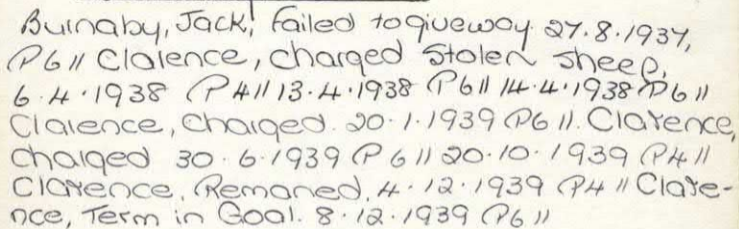 Burnaby, Jack, Failed to giveway. 27.8.1937,
(P6 // Clarence, charged Stolen Sheep,
6.4.1938 (P4 // 13.4.1938 (P6 // 14.4.1938 (P6 //
Clarence, Charged. 20.1.1939 (P6 //. Clarence,
charged 30.6.1939 (P6 // 20.10.1939 (P4 //
Clarence, Remaned, 4.12.1939 (P4 // Clare-
nce, Term in Goal. 8.12.1939 (P6 //